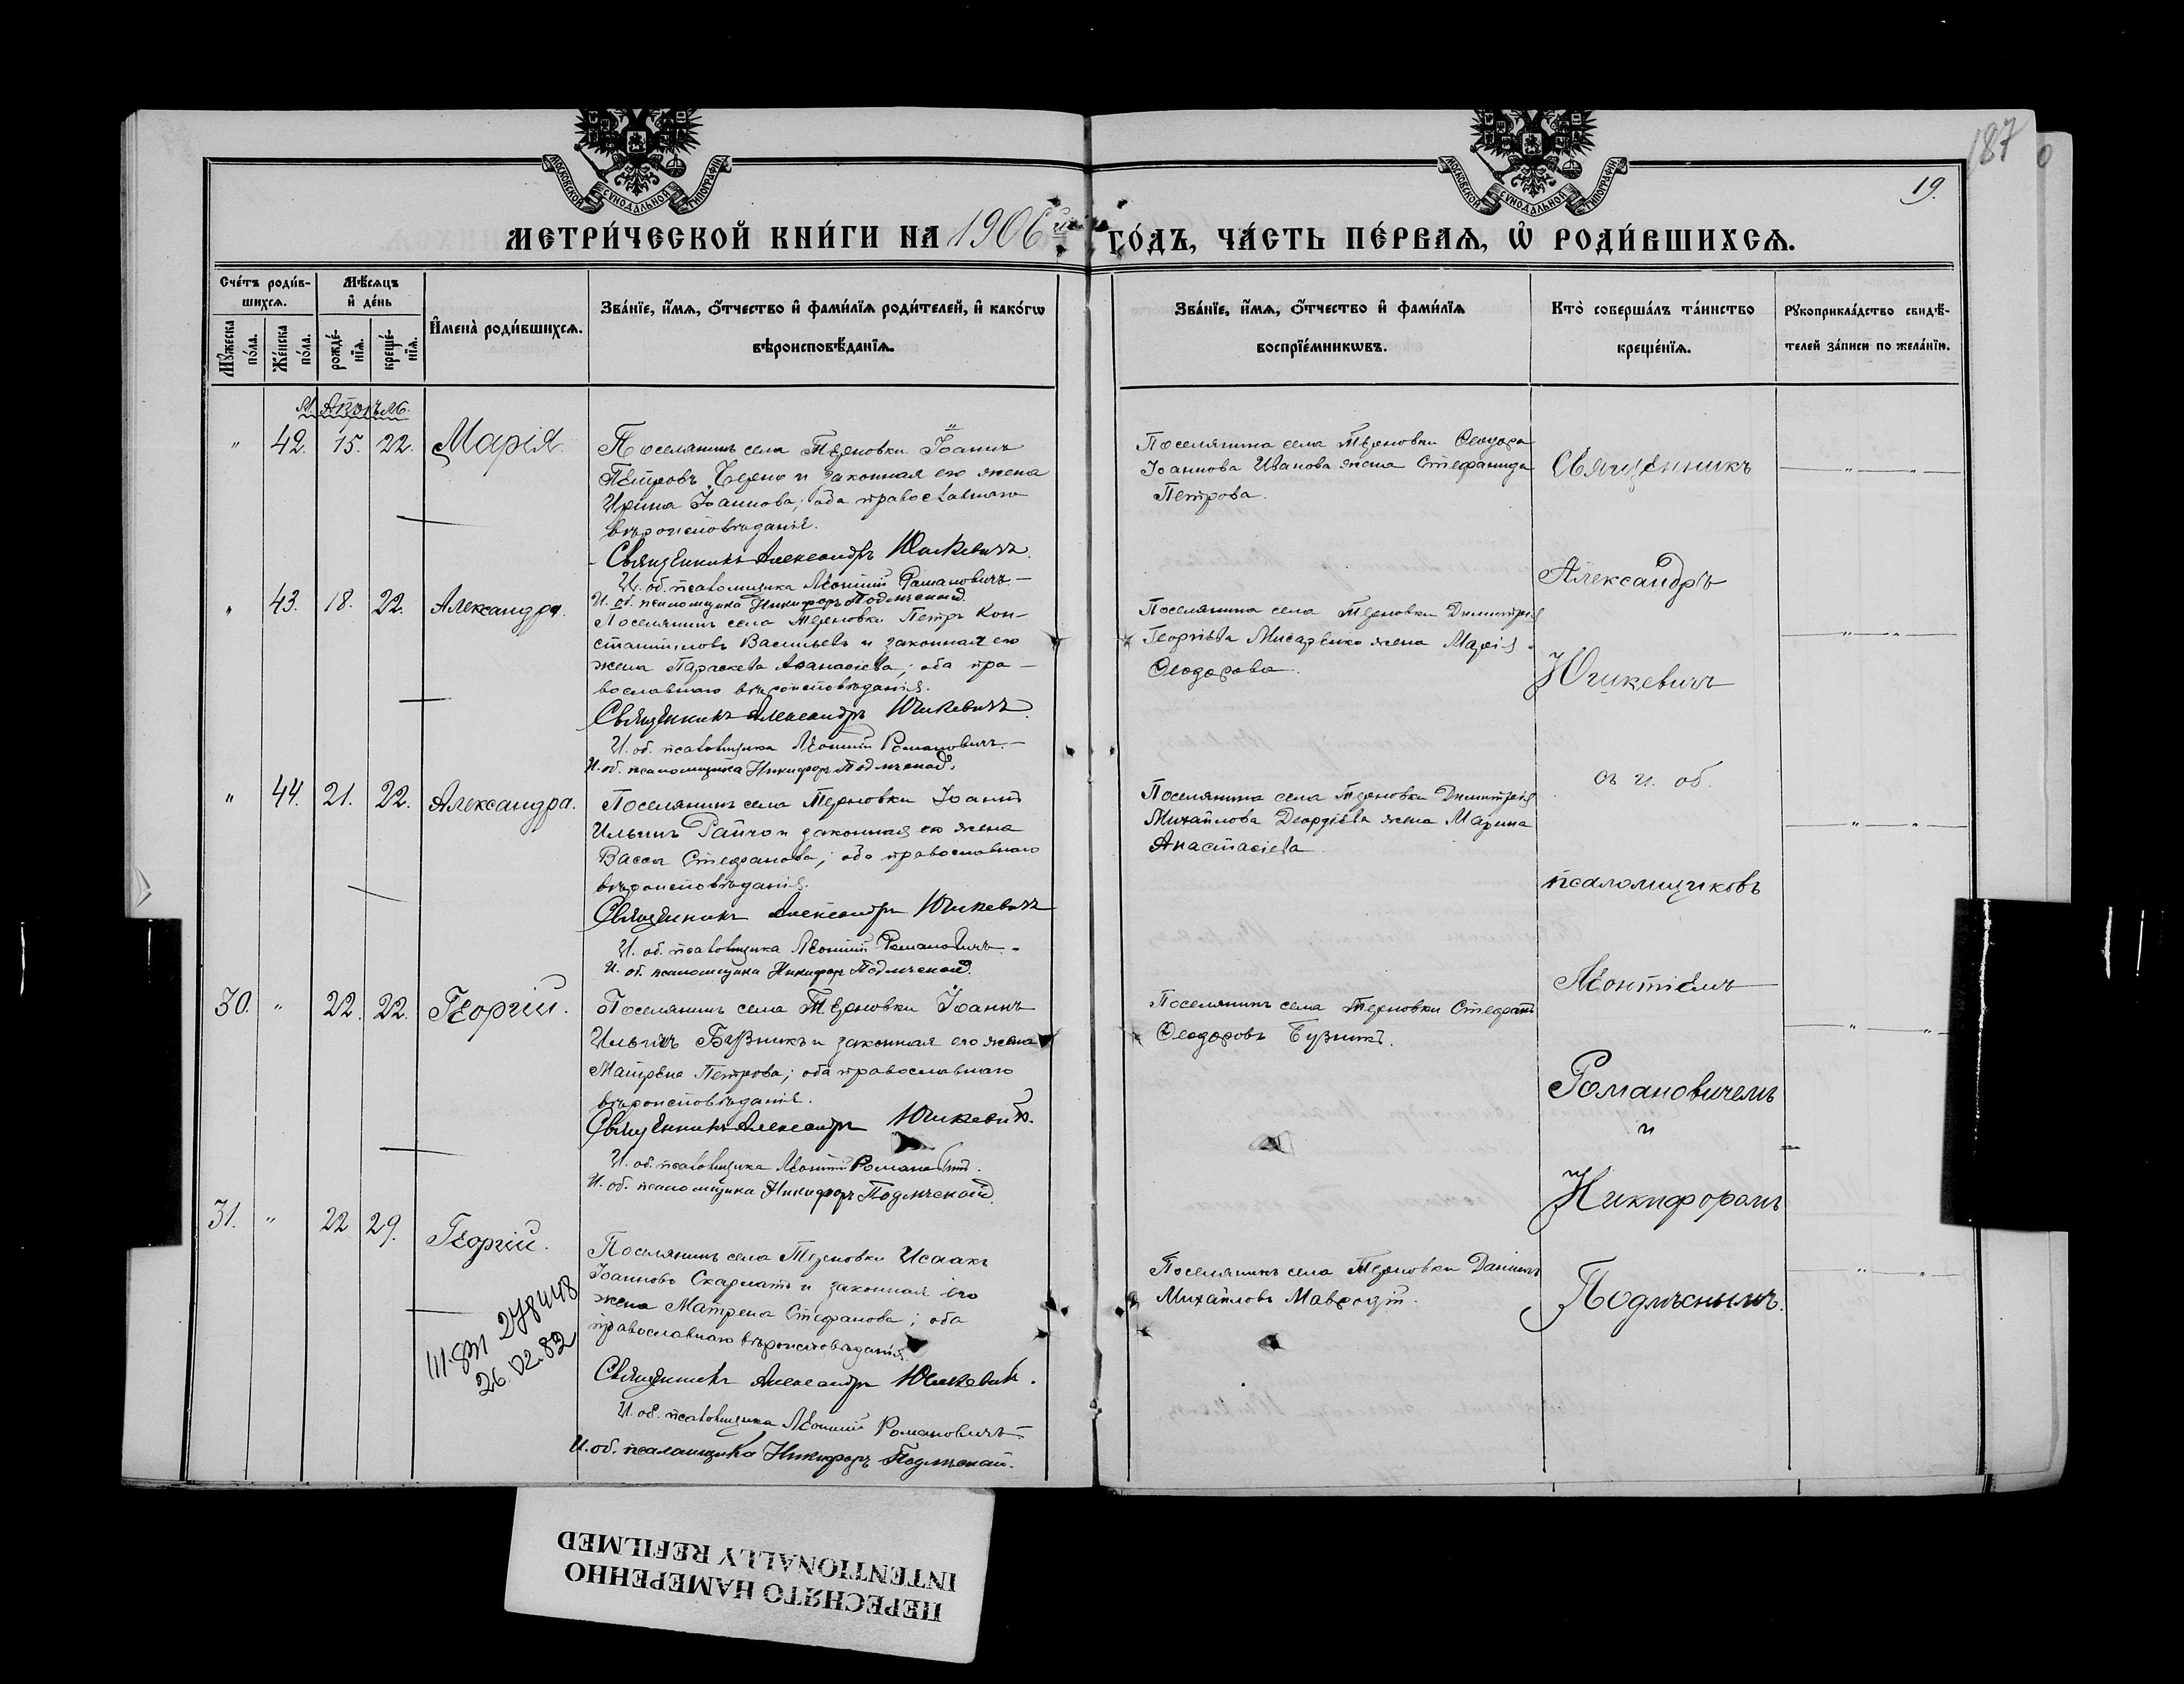 187
19.
МОСКОВСКОЙ СѴНОДАЛЬНОЙ ТИПОГРАФІИ
МОСКОВСКОЙ СѴНОДАЛЬНОЙ ТИПОГРАФІИ
МЕТРИ́ЧЕСКОЙ КНИ́ГИ НА 1906 ГО́ДЪ, ЧА́СТЬ ПЕ́РВАѦ, Ѡ҆ РОДИ́ВШИХСѦ.
Сче́тъ роди́в-
шихсѧ.
Мꙋжеска по́ла.
Же́нска по́ла.
Мѣ́сѧцъ
и҆ де́нь
рожде́-
нїѧ.
креще́-
нїѧ.
И҆мена̀ роди́вшихсѧ.
Зва́нїе, и҆́мѧ, ѻ҆́тчество и҆ фами́лїѧ роди́телей, и҆ како́гѡ
вѣроисповѣ́данїѧ.
Зва́нїе, и҆́мѧ, ѻ҆́тчество и҆ фами́лїѧ
воспрїе́мникѡвъ.
Кто̀ соверша́лъ та́инство
креще́нїѧ.
Рꙋкоприкла́дство свидѣ́-
телей за́писи по жела́нїю.
М. Апрѣль.
" 42. 15. 22. Марія.
Поселянинъ села Терновки Іоаннъ
Петровъ и законная его жена
Ирина Іоаннова, оба православнаго
вѣроисповѣданія.
Священникъ Александръ Юшкевичъ.
И. об. псаломщика Леонтій Романовичъ.
И. об. псаломщика Никифоръ Подлѣсный.
Поселянина села Терновки Ѳеодора
Іоаннова Иванова жена Стефанида
Петрова.
" 43. 18. 22. Александра.
Поселянинъ села Терновки Петръ Кон-
стантиновъ Васильевъ и законная его
жена Параскева Аѳанасіева; оба пра-
вославнаго вѣроисповѣданія.
Священникъ Александръ Юшкевичъ.
И. об. псаломщика Леонтій Романовичъ.
И. об. псаломщика Никифоръ Подлѣсный.
Поселянина села Терновки Димитрія
Георгіева Мисаренко жена Марія
Ѳеодорова.
" 44. 21. 22. Александра.
Поселянинъ села Терновки Іоаннъ
Ильинъ Райчо и законная его жена
Васса Стефанова; оба православнаго
вѣроисповѣданія.
Священникъ Александръ Юшкевичъ
И. об. псаломщика Леонтій Романовичъ.
И. об. псаломщика Никифоръ Подлѣсный.
Поселянина села Терновки Димитрія
Михайлова Деордіева жена Марина
Анастасіева
30. " 22. 22. Георгій.
Поселянинъ села Терновки Іоаннъ
Ильинъ и законная его жена
Матрена Петрова; оба православнаго
вѣроисповѣданія.
Священникъ Александръ Юшкевичъ.
И. об. псаломщика Леонтій Романовичъ.
И. об. псаломщика Никифоръ Подлѣсный.
Поселянинъ села Терновки Стефанъ
Ѳеодоровъ Бузникъ.
31. " 22 29. Георгій.
26.02.82
Поселянинъ села Терновки Исаакъ
Іоанновъ Скарлатъ и законная его
жена Матрена Стефанова; оба
православнаго вѣроисповѣданія.
Священникъ Александръ Юшкевичъ.
И. об. псаломщика Леонтій Романовичъ
И. об. псаломщика Никифоръ Подлѣсный.
Поселянинъ села Терновки Даніилъ
Михайловъ Мавродій.
Священникъ
Александръ
Юшкевичъ
съ и. об.
псаломщиковъ
Леонтіемъ
Романовичемъ
и
Никифоромъ
Подлѣснымъ.
ПЕРЕСНЯТО НАМЕРЕННО
INTENTIONALLY REFILMED